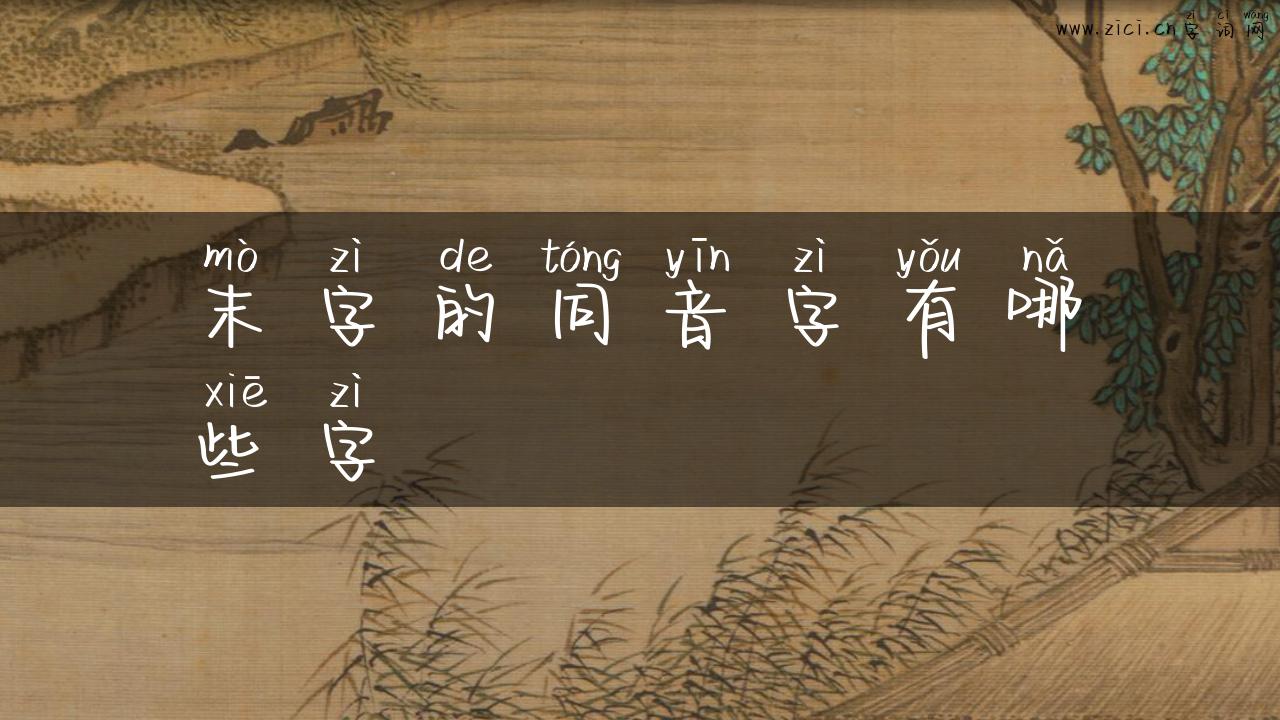 zì cí wǎng
www.zici.cn字词网
mò zì de tóng yīn zì yǒu nǎ
末字的同音字有哪
xiē zì
些字